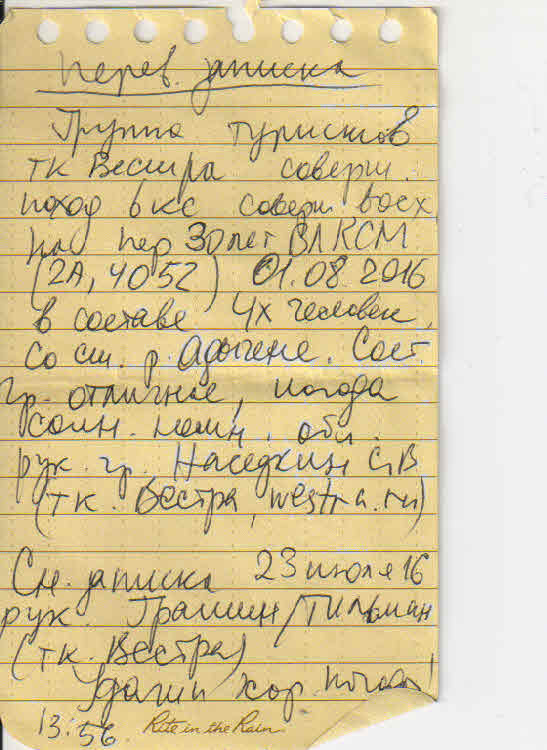 Перев. записка
Группа туристов
тк Вестра соверш.
поход 6 кс соверш восх
на пер 30 лет ВЛКСМ
(2А, 4052) 01.08.2016
в составе 4х человек,
со ст. р. Адыгене. Сост.
гр. отличное, погода
солн. обл.
рук. гр. Наседкин С,В
(тк. Вестра, westra.ru)
См. записка 23 июля 16
рук. Грашин/Тильман
(тк. Вестра)
Удачи хор. погоды!
13:56. Rite in the Rain